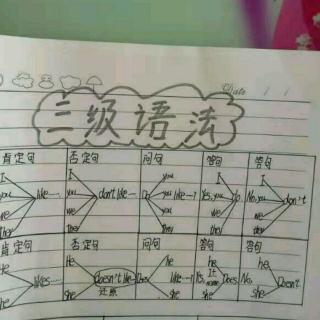 Date / /
三级语法
肯定句 否定句 问句 答句 答句
I I you I I
you like... you don't like... Do you like...? Yes, you do. No, you don't
we we we we we
they they they they they
肯定句 否定句 问句 答句 答句
He He he he he
likes... Doesn't like Does like...? Yes, It Does No, Doesn't
还原
She she she she she